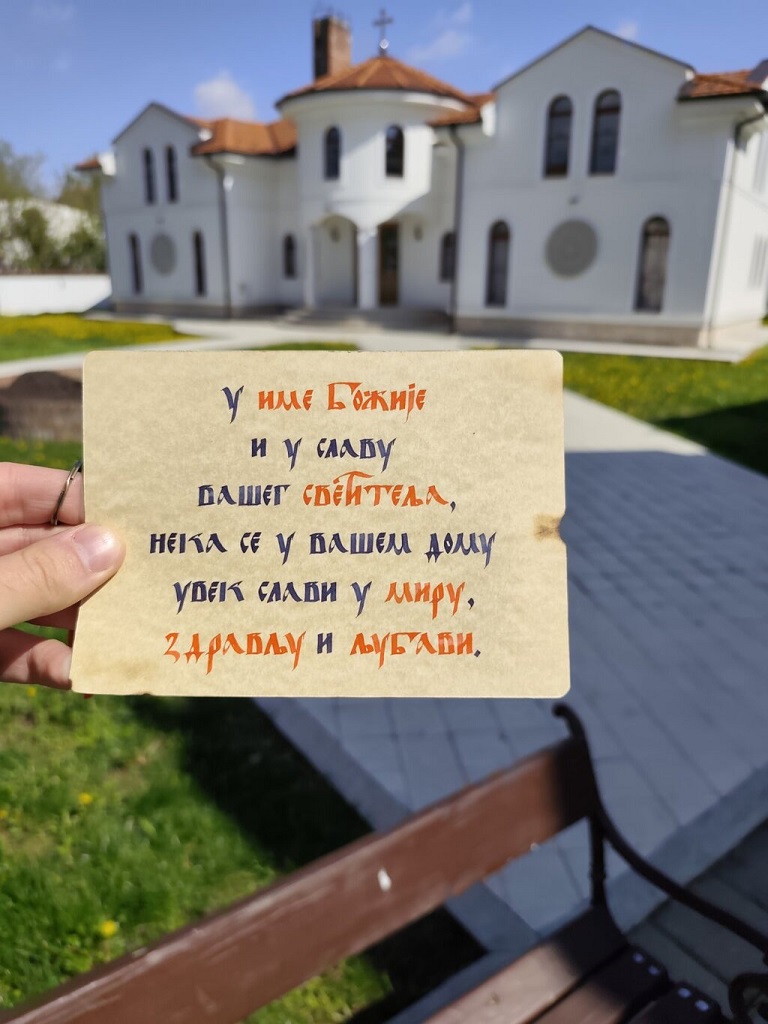 у име Божије
и у славу
вашег светитеља,
нека се у вашем дому
увек слави у миру,
здрављу и љубави.